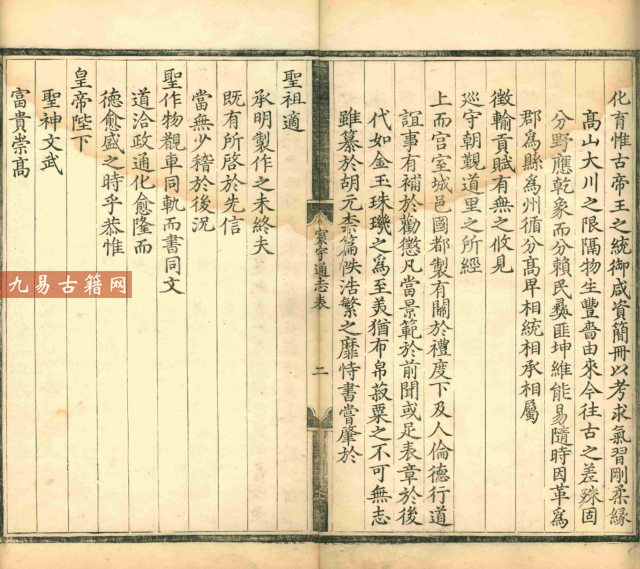 化育惟古帝王之統御咸資簡冊以考求氣習剛柔緣
高山大川之限隔物生豐嗇由來今往古之差殊固
分野應乾象而分賴民彝匪坤維能易隨時因革為
郡為縣為州循分高卑相統相承相屬
徵輸貢賦有無之攸見
巡守朝覲道里之所經
上而宮室城邑國都製有關於禮度下及人倫德行道
誼事有補於勸懲凡當景範於前聞或足表章於後
代如金玉珠璣之為至美猶布帛菽粟之不可無志
雖纂於胡元柰篇帙浩繁之靡恃書嘗肇於
寰宇通志表
二
聖祖適
承明製作之未終夫
既有所啓於先信
當無少稽於後況
聖作物觀車同軌而書同文
道洽政通化愈隆而
德愈盛之時乎恭惟
皇帝陛下
聖神文武
富貴崇高
九易古籍网